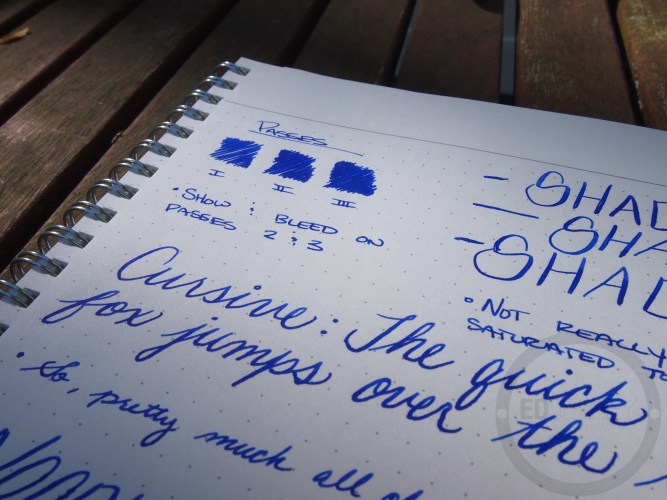 PASSES
I II III
• SHOW & BLEED ON
PASSES 2 & 3
- SHAD
— SHA
- SHAD
• NOT REALLY
SATURATED TO
Cursive: The quick
fox jumps over the
• So, pretty much all